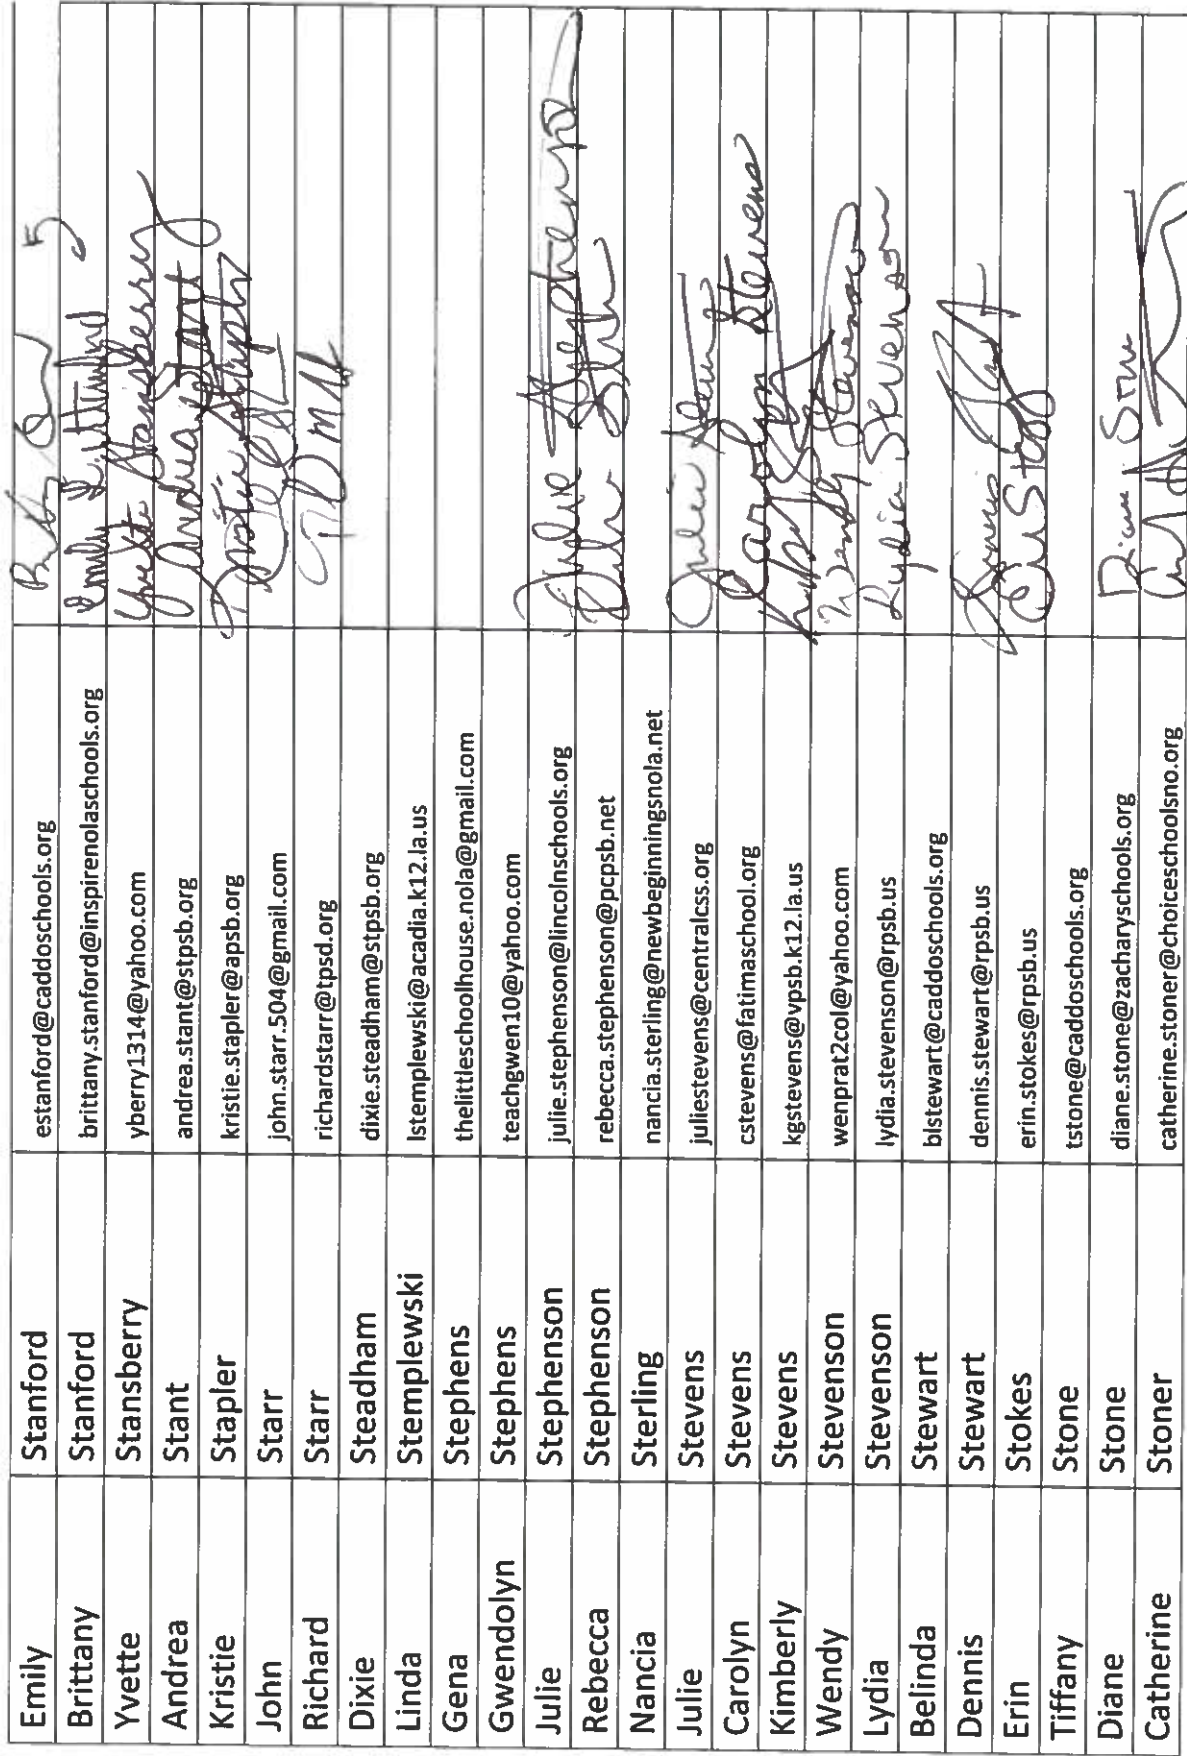 Emily Stanford estanford@caddoschools.org
Brittany Stanford brittany.stanford@inspirenolaschools.org
Yvette Stansberry yberry1314@yahoo.com Yvette Stansberry
Andrea Stant andrea.stant@stpsb.org Andrea Stant
Kristie Stapler kristie.stapler@apsb.org Kristie Stapler
John Starr john.starr.504@gmail.com
Richard Starr richardstarr@tpsd.org
Dixie Steadham dixie.steadham@stpsb.org
Linda Stemplewski lstemplewski@acadia.k12.la.us
Gena Stephens thelittleschoolhouse.nola@gmail.com
Gwendolyn Stephens teachgwen10@yahoo.com
Julie Stephenson julie.stephenson@lincolnschools.org Julie Stephenson
Rebecca Stephenson rebecca.stephenson@pcpsb.net
Nancia Sterling nancia.sterling@newbeginningsnola.net
Julie Stevens juliestevens@centralcss.org Julie
Carolyn Stevens cstevens@fatimaschool.org Carolyn Stevens
Kimberly Stevens kgstevens@vpsb.k12.la.us
Wendy Stevenson wenprat2col@yahoo.com Wendy Stevenson
Lydia Stevenson lydia.stevenson@rpsb.us Lydia Stevenson
Belinda Stewart blstewart@caddoschools.org
Dennis Stewart dennis.stewart@rpsb.us Dennis
Erin Stokes erin.stokes@rpsb.us
Tiffany Stone tstone@caddoschools.org
Diane Stone diane.stone@zacharyschools.org Diane Stone
Catherine Stoner catherine.stoner@choiceschoolsno.org